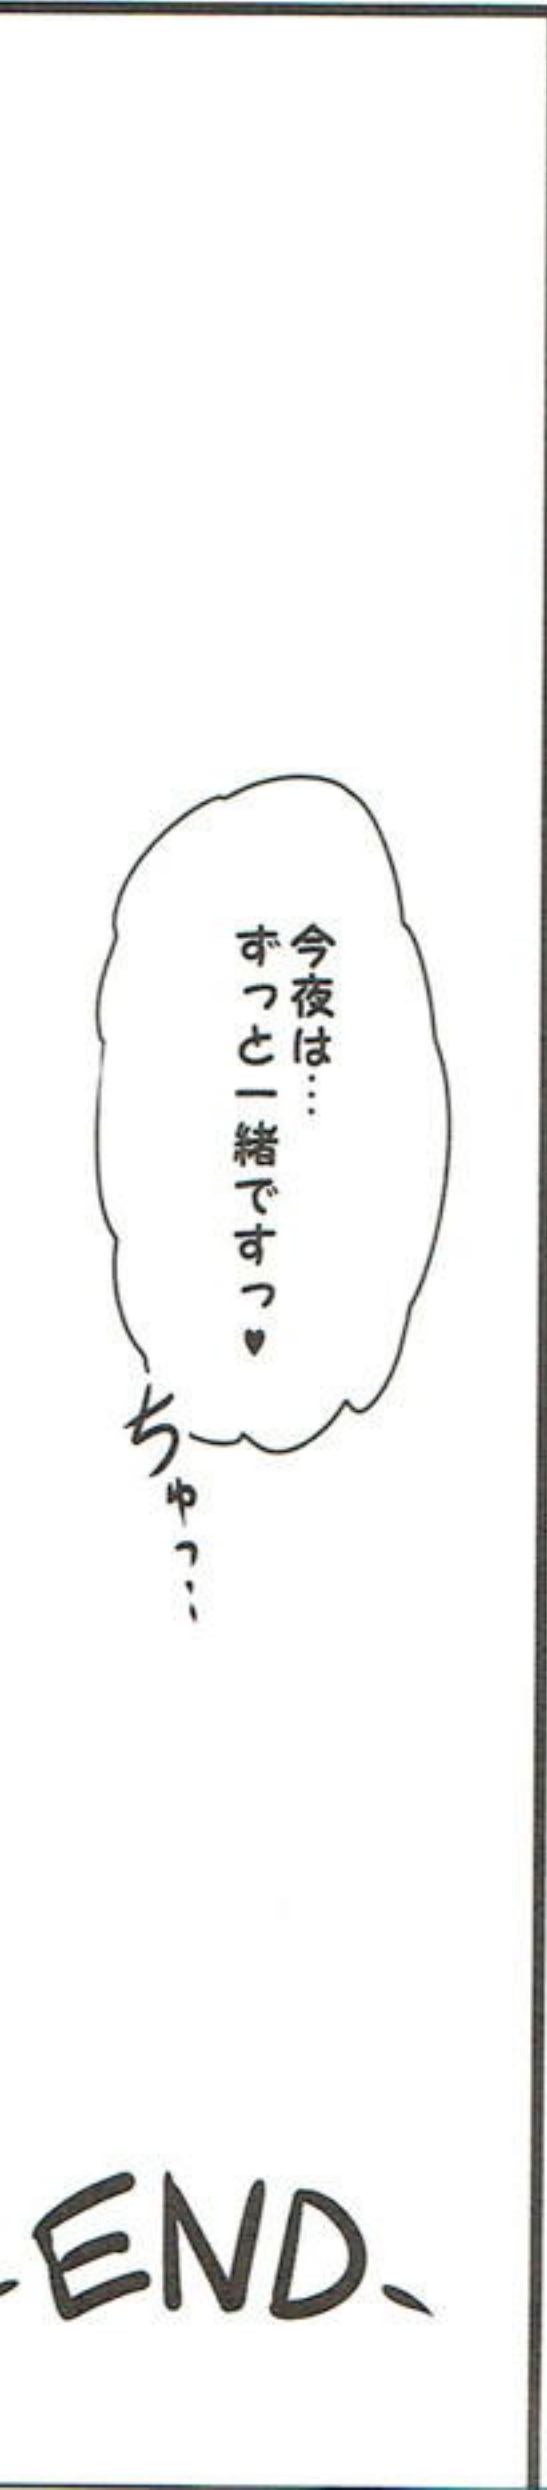 今夜は…
ずっと一緒ですっ♥
ちゅっ…
-END-